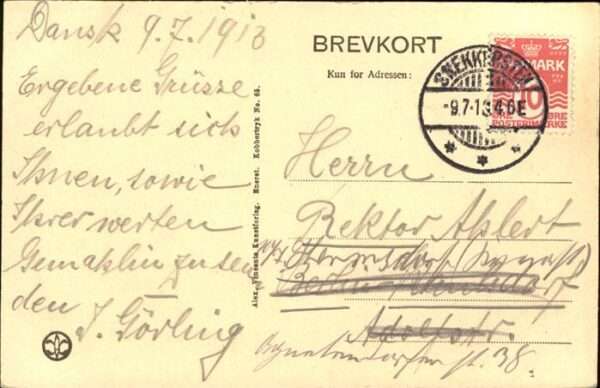 Dansk 9.7.1913
Ergebene Grüsse
erlaubt sich
Ihnen, sowie
Ihrer werten
Gemahlin zu sen
den J. Görling
Alex. Vincents Kunstforlag. Eneret. Kobbertryk No. 68.
BREVKORT
Kun for Adressen:
SNEKKERSTEN
-9.7.13.4.6E
MARK
10
POSTFRIMÆRKE
Herrn
Rektor Ahlert
Berlin-Wilmersdorf
Adolfstr.
38.